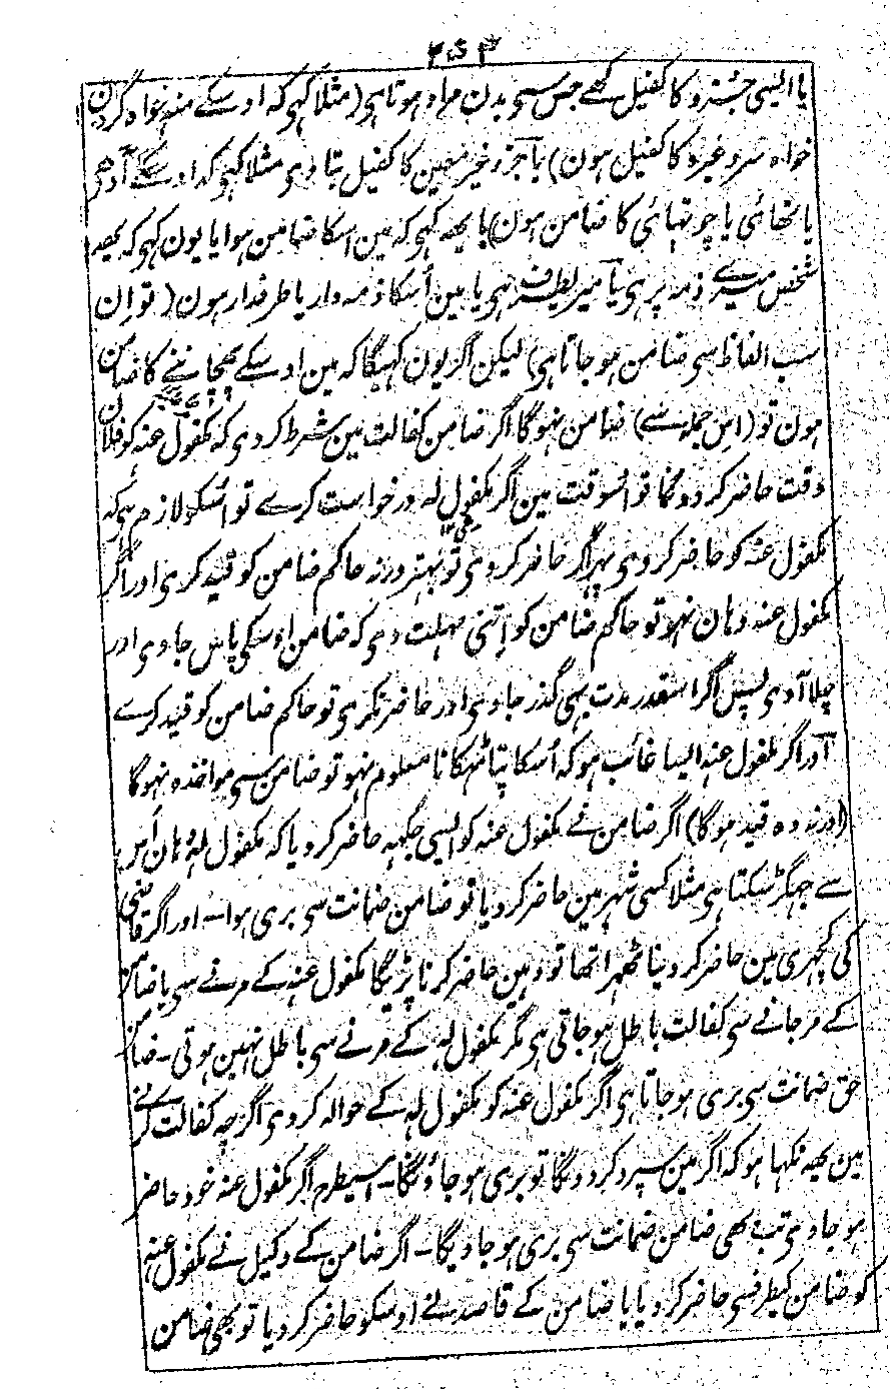 ۲۵۳
یا ایسی جزو کا کفیل کہے جس سی بدن مراد ہوتا ہی (مثلاً کہی کہ اوسکے منہ خواہ گردن
خواہ سر وغیرہ کا کفیل ہون) یا جزو غیر معین کا کفیل بتا دی مثلا کہی کہ اوسکے آدھی
یا تہائی یا چوتہائی کا ضامن ہون) یا یہہ کہی کہ مین اسکا ضامن ہوا یا یون کہی کہ یہہ
شخص میرے ذمہ پر ہی یا میریطرف ہی یا مین اُسکا ذمہ دار یا طرفدار ہون (تو اِن
سب الفاظ سی ضامن ہو جاتا ہی) لیکن اگر یون کہیگا کہ مین اوسکے پہچاننے کا ضامن
ہون تو (اِس جملہ سے) ضامن نہوگا اگر ضامن کفالت مین شرط کر دی کہ مکفول عنہ کو فلان
وقت حاضر کر دونگا تو اُسوقت مین اگر مکفول لہ درخواست کرے تو اُسکو لازم ہی کہ
مکفول عنہ کو حاضر کر دی پہر اگر حاضر کر دی تو بہتر ورنہ حاکم ضامن کو قید کری اور اگر
مکفول عنہ وہان نہو تو حاکم ضامن کو اِتنی مہلت دی کہ ضامن اوسکی پاس جاوی اور
چلا آوی پس اگر اسقدر مدت بہی گذر جاوی اور حاضر نکری تو حاکم ضامن کو قید کرے
اور اگر مکفول عنہ ایسا غائب ہو کہ اُسکا پتا ٹہکانا معلوم نہو تو ضامن سی مواخذہ نہوگا
(اور نہ وہ قید ہوگا) اگر ضامن نے مکفول عنہ کو ایسی جگہہ حاضر کر دیا کہ مکفول لہ وہان اُس
سے جہگڑ سکتا ہی مثلا کسی شہر مین حاضر کر دیا تو ضامن ضمانت سی بری ہوا۔ اور اگر قاضی
کی کچہری مین حاضر کر دینا ٹھہرا تھا تو وہین حاضر کرنا پڑیگا مکفول عنہ کے مرنے سی یا ضامن
کے مرجانے سی کفالت باطل ہو جاتی ہی مگر مکفول لہ کے مرنے سی باطل نہین ہوتی۔ ضامن
حق ضمانت سی بری ہو جاتا ہی اگر مکفول عنہ کو مکفول لہ کے حوالہ کر دی اگرچہ کفالت کرنے
مین یہہ نکہا ہو کہ اگر مین سپرد کر دونگا تو بری ہو جاؤنگا۔ اسیطرح اگر مکفول عنہ خود حاضر
ہو جاوی تب بھی ضامن ضمانت سی بری ہو جاویگا۔ اگر ضامن کے وکیل نے مکفول عنہ
کو ضامن کیطرف سی حاضر کر دیا یا ضامن کے قاصد نے اوسکو حاضر کر دیا تو بھی ضامن